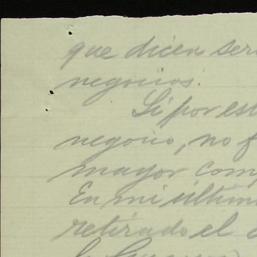 que dicen ser
negocios.
Si por est
negocio, no f
mayor com
En mi últim
retirado el